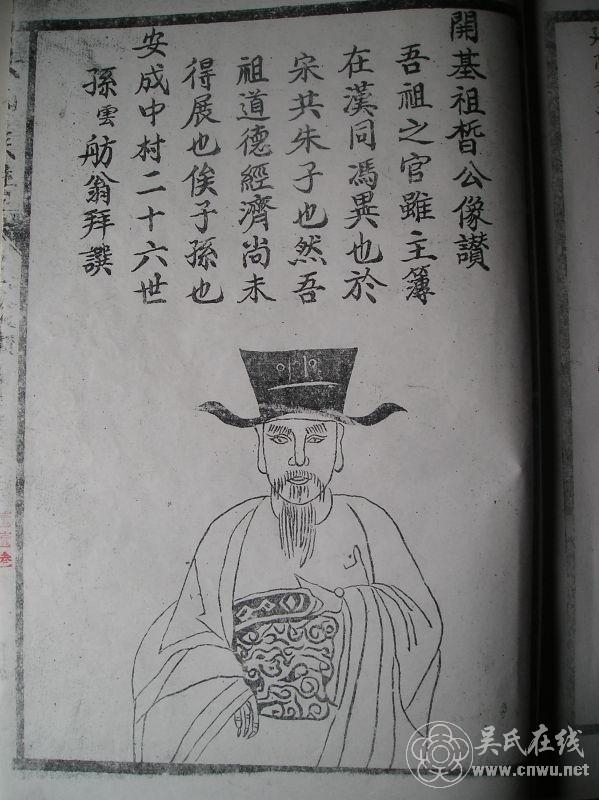 開基祖晳公像讃
吾祖之官雖主簿
在漢同馮異也於
宋共朱子也然吾
祖道德經濟尚未
得展也俟子孫也
安成中村二十六世
孫雲舫翁拜譔
吴氏在线
www.cnwu.net